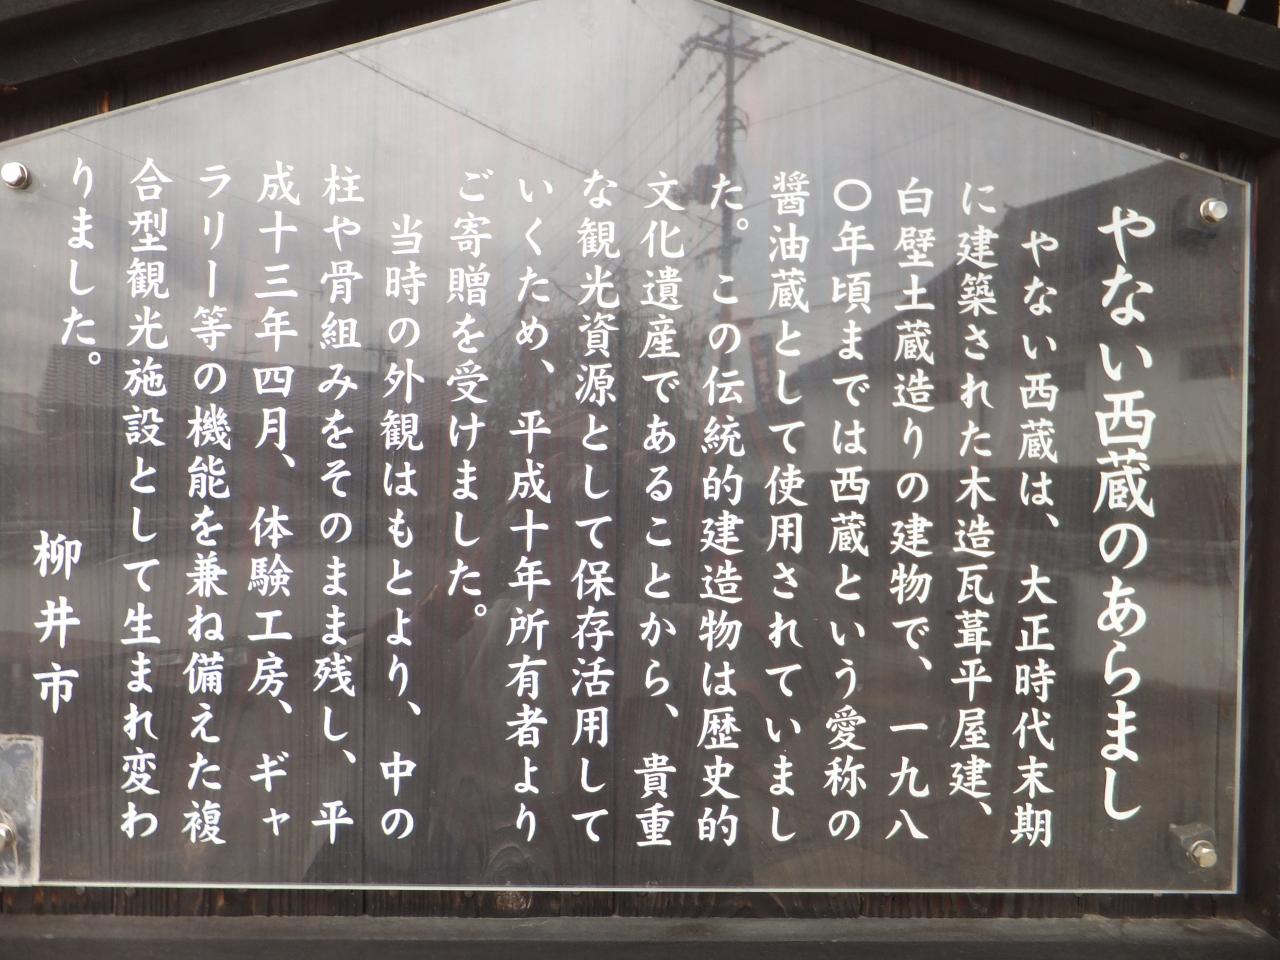 やない西蔵のあらまし
やない西蔵は、大正時代末期
に建築された木造瓦葺平屋建、
白壁土蔵造りの建物で、一九八
〇年頃までは西蔵という愛称の
醤油蔵として使用されていまし
た。この伝統的建造物は歴史的
文化遺産であることから、貴重
な観光資源として保存活用して
いくため、平成十年所有者より
ご寄贈を受けました。
当時の外観はもとより、中の
柱や骨組みをそのまま残し、平
成十三年四月、体験工房、ギャ
ラリー等の機能を兼ね備えた複
合型観光施設として生まれ変わ
りました。
柳井市